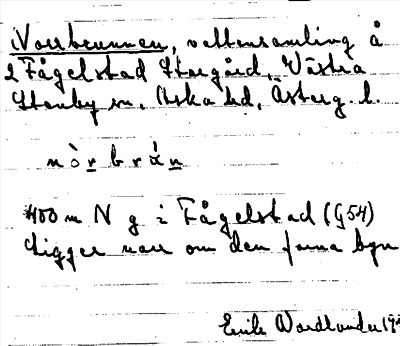 Norrbrunnen, vattensamling å
2 Fågelstad Storgård, Västra
Stenby sn, Aska hd, Österg. l.
nòrbrán
400 m N g i Fågelstad (G54)
Ligger norr om den forna byn
Emile Wardlander 19